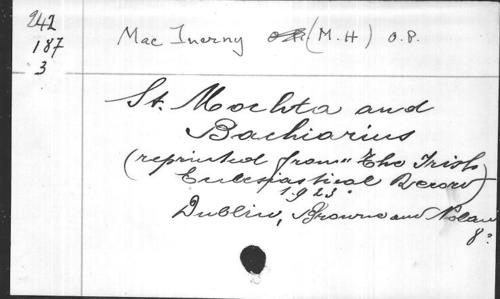 242
187
3
Mac Inerny (M. H) O.P.
St. Mochta and
Bachiarius
(reprinted from "The Irish
Ecclesiastical Record)
1923.
Dublin, Browne and Nolan
8°